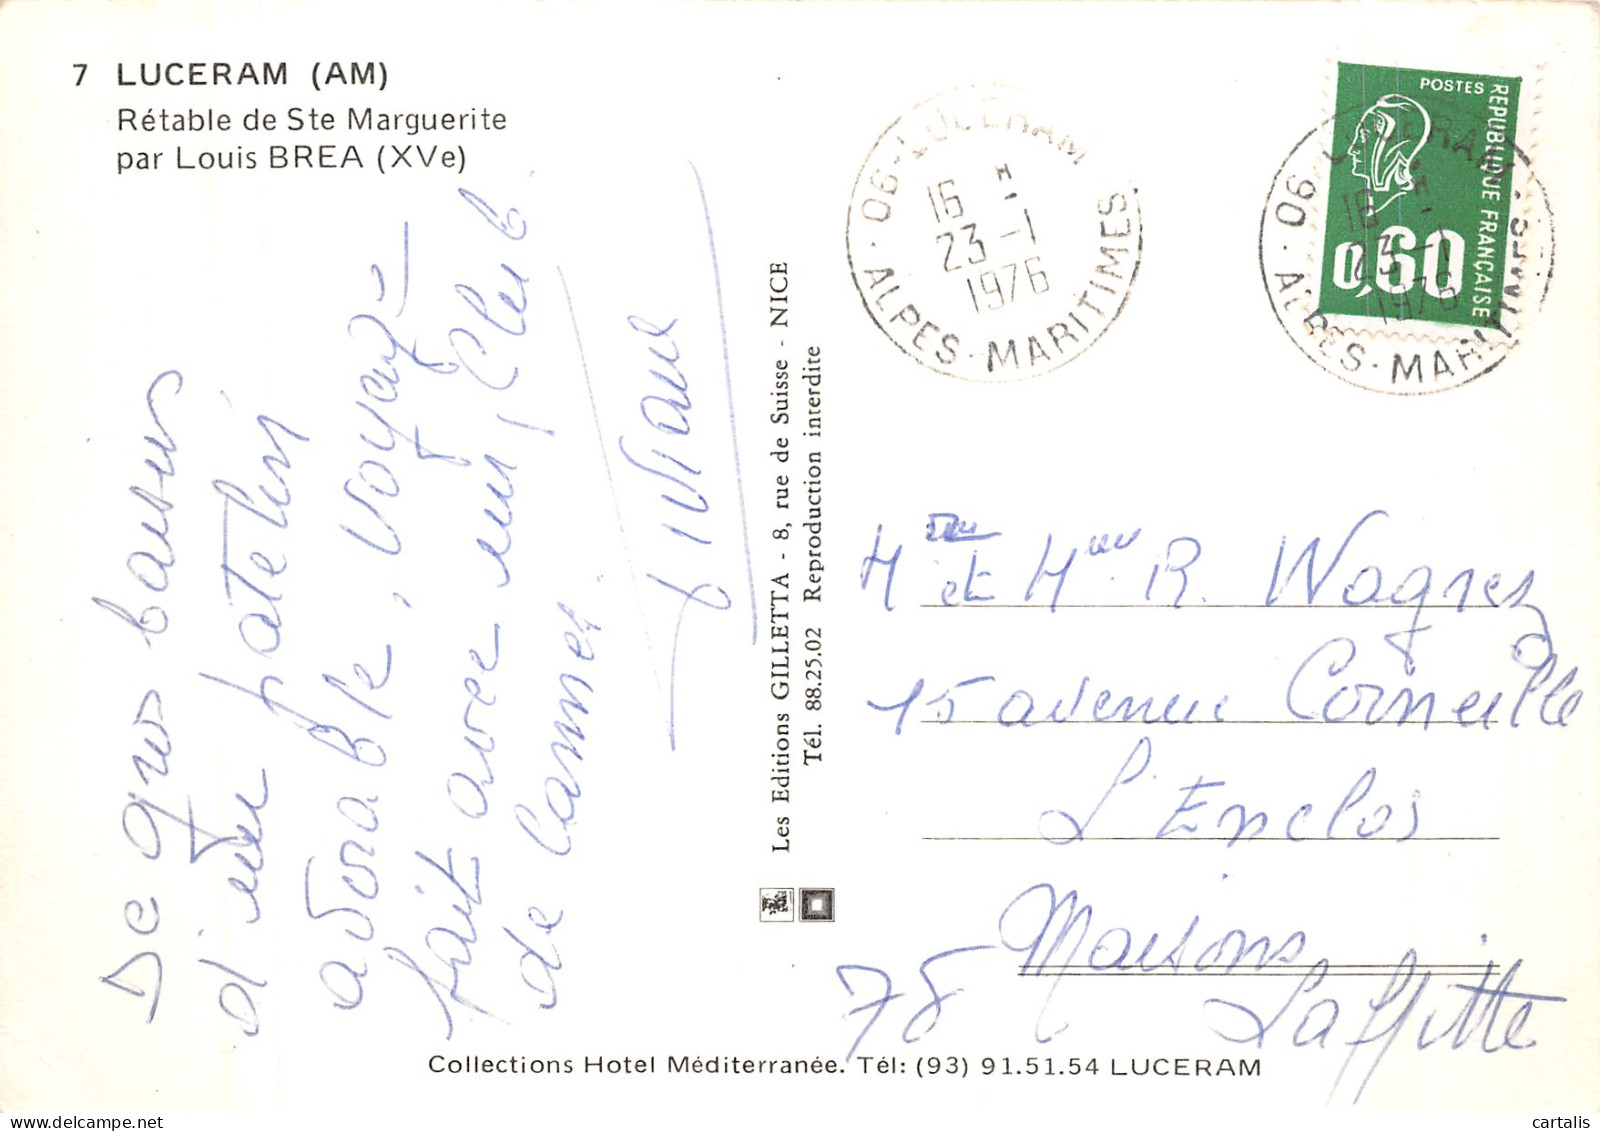 7 LUCERAM (AM)
Rétable de Ste Marguerite
par Louis BREA (XVe)
De gros baisers
d'un patelin
adorable, voyage
fait avec un Club
de Cannes
Viviane
Les Editions GILLETTA - 8, rue de Suisse - NICE
Tél. 88.25.02 Reproduction interdite
06-LUCERAM
16 H
23 -1
1976
ALPES-MARITIMES
POSTES
REPUBLIQUE FRANCAISE
0,60
06-LUCERAM
16 H
23 -1
1976
ALPES-MARITIMES
et R. Wagner
15 avenue Corneille
L'Enclos
78 Maisons
Laffitte
Collections Hotel Méditerranée. Tél: (93) 91.51.54 LUCERAM
cartalis